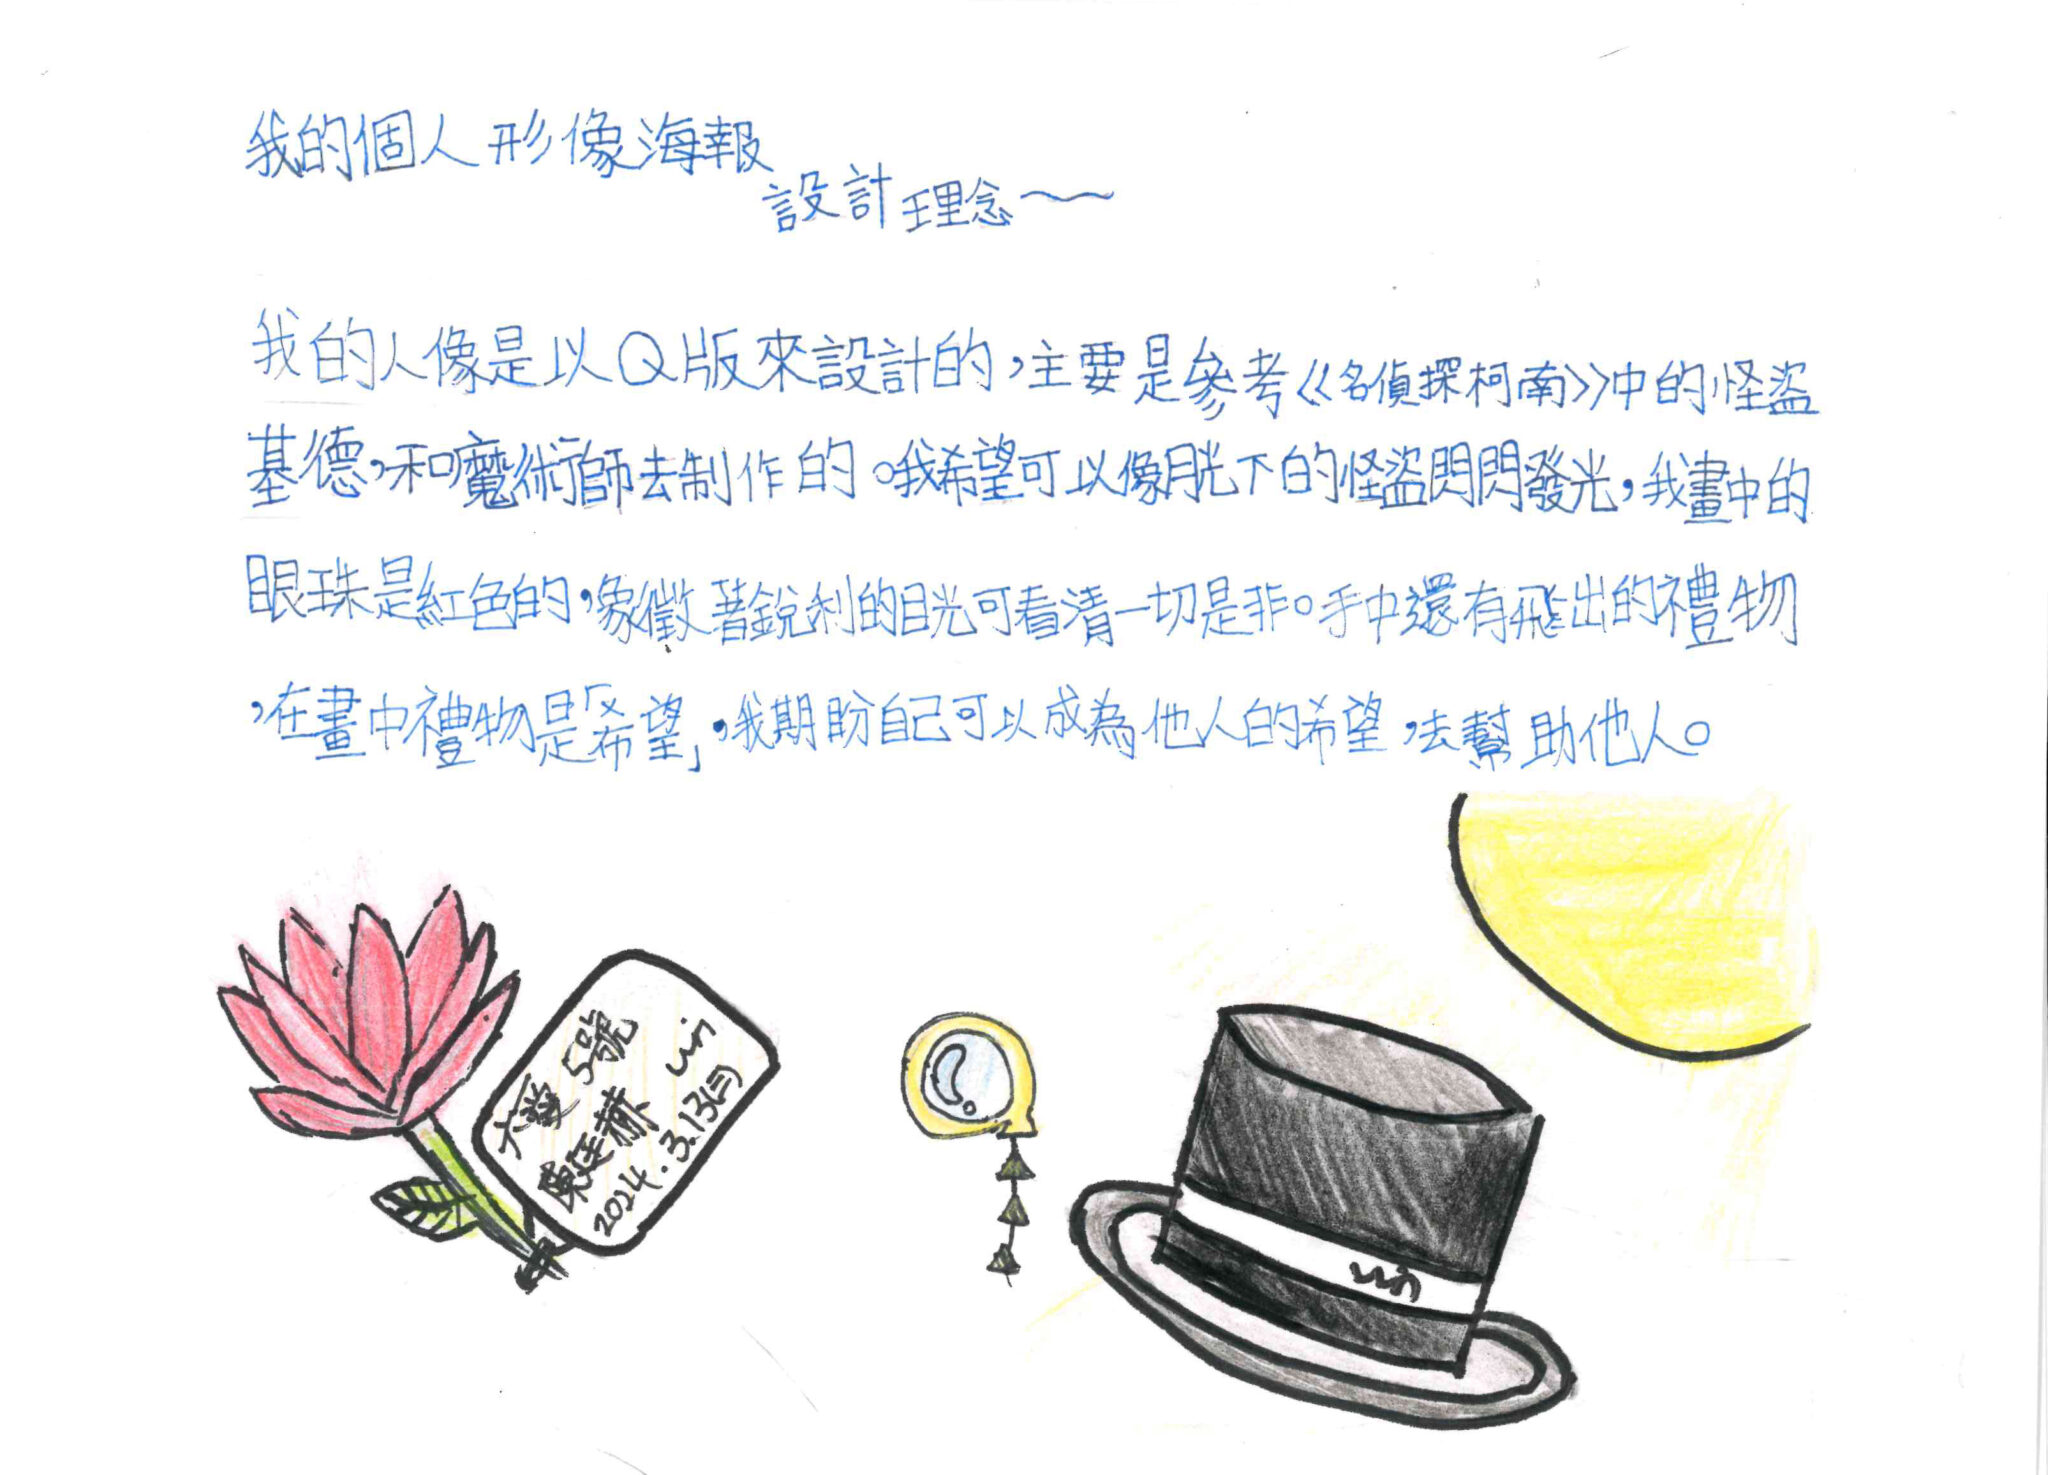 我的個人形像海報
設計理念～
我的人像是以Q版來設計的，主要是參考《名偵探柯南》中的怪盜
基德，和魔術師去制作的。我希望可以像月光下的怪盜閃閃發光，我畫中的
眼珠是紅色的，象徵著銳利的目光可看清一切是非。手中還有飛出的禮物
，在畫中禮物是「希望」，我期盼自己可以成為他人的希望，去幫助他人。
六愛 5號
陳廷赫
2024.3.13(三)